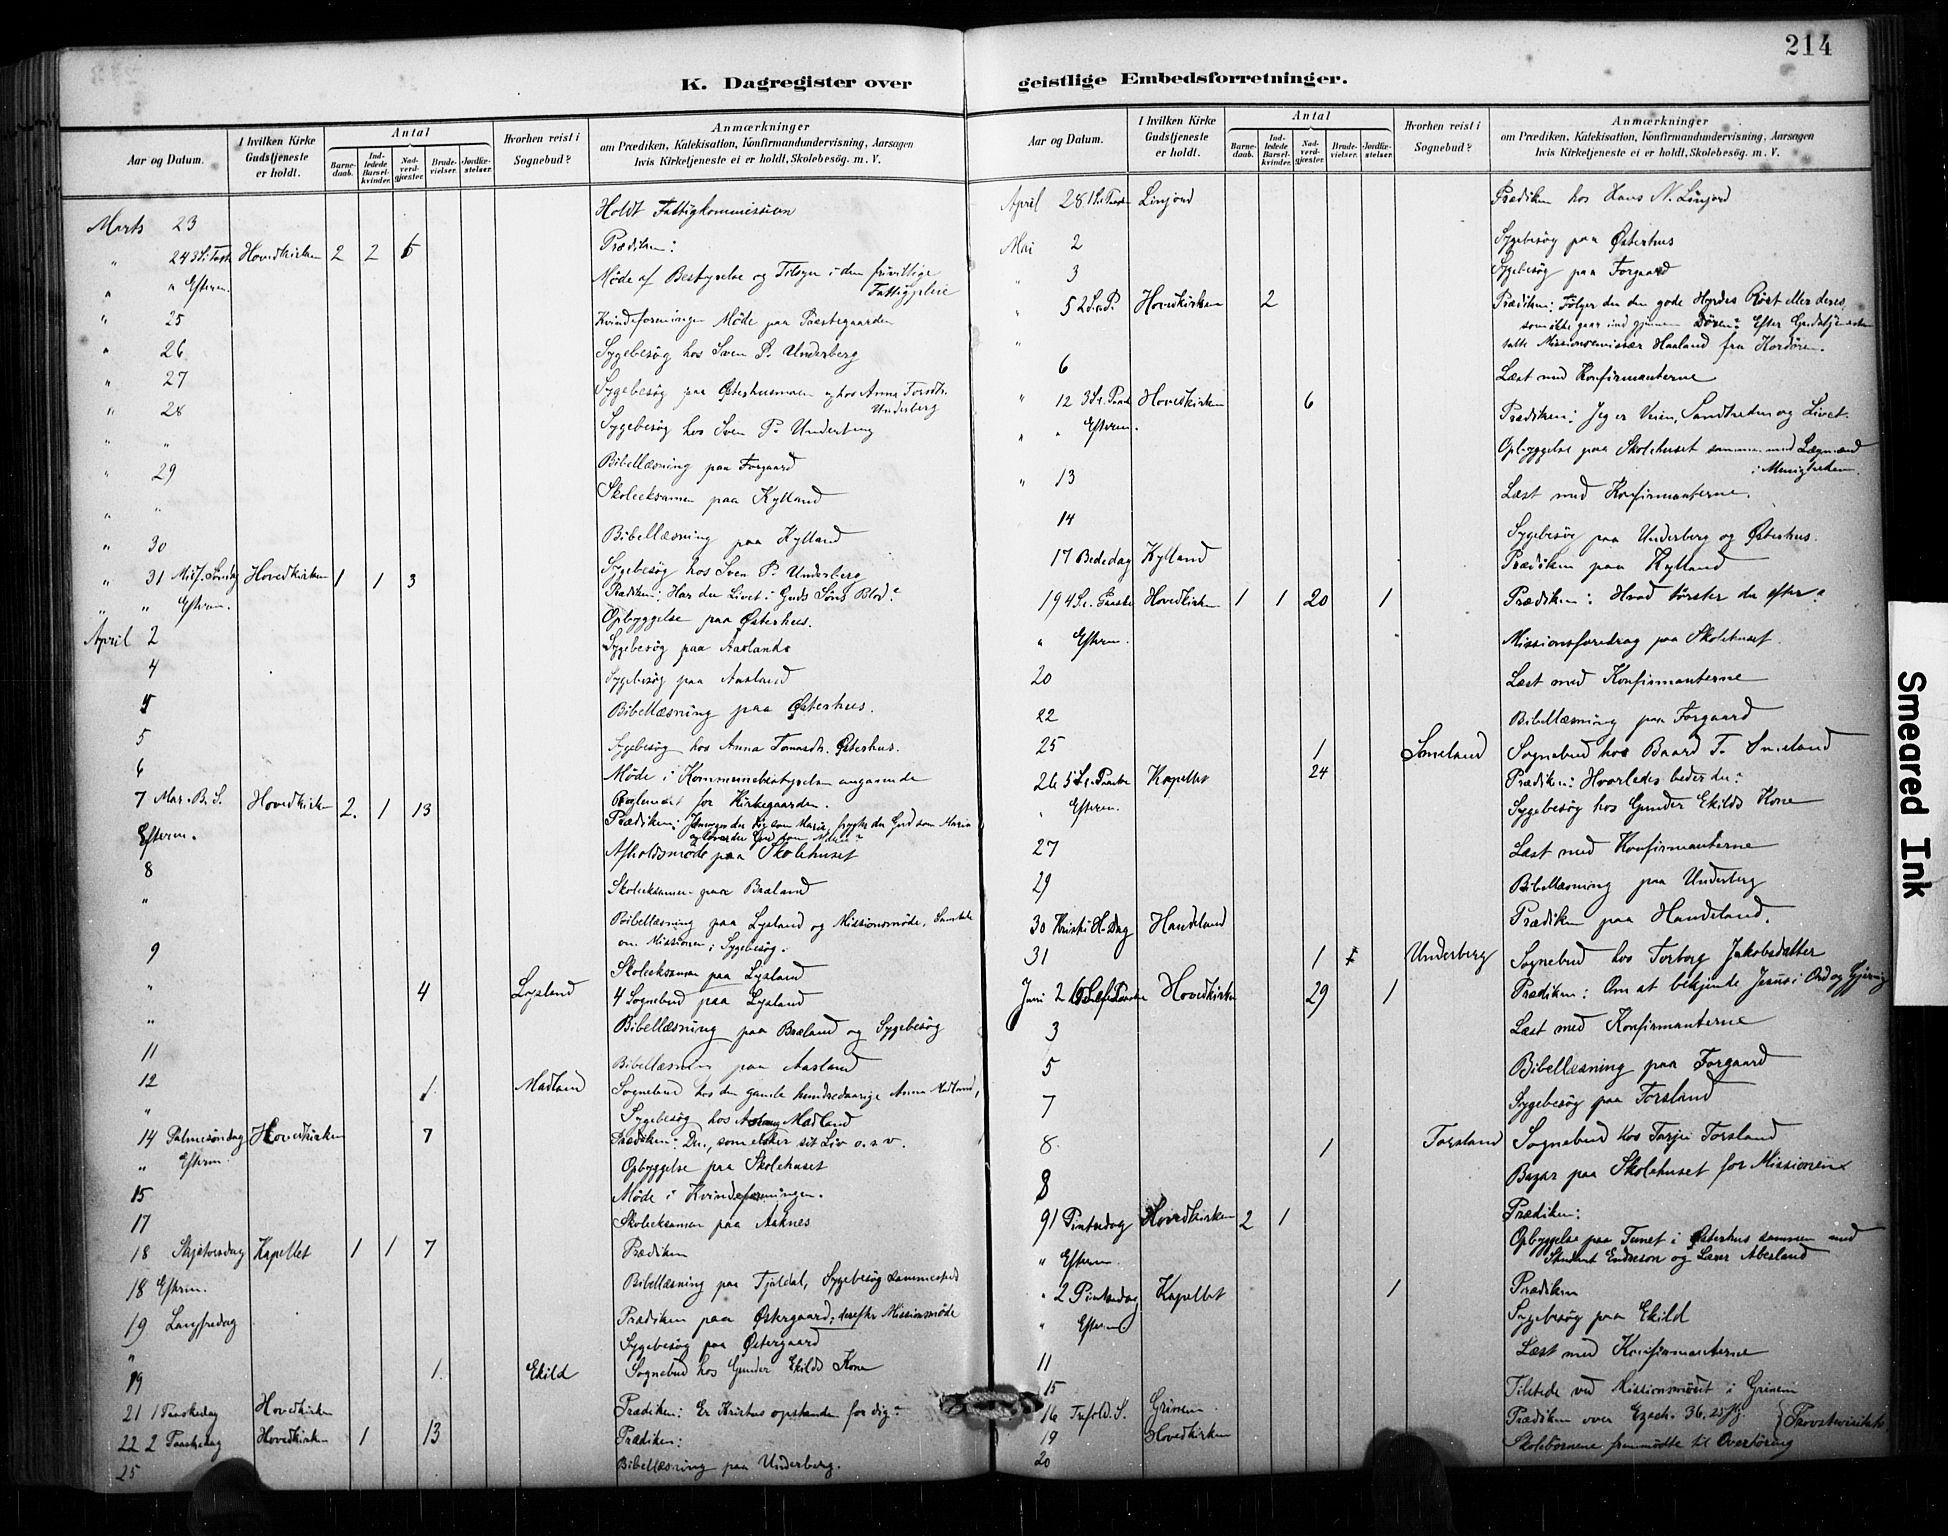 214
K. Dagregister over geistlige Embedsforretninger.
Aar og Datum. I hvilken Kirke Gudstjeneste er holdt. Antal Barnedaab. Indledede Barselkvinder. Nadverdgjæster. Brudevielser. Jordfæstelser. Hvorhen reist i Sognebud? Anmærkninger om Prædiken, Katekisation, Konfirmandundervisning, Aarsagen hvis Kirketjeneste ei er holdt, Skolebesøg. m. V.
Marts 23 Holdt Fattigkommission
" 24 3 S. i Faste Hovedkirken 2 2 6 Prædiken:
" " Efterm. Møde af Bestyrelse og Tilsyn i den frivillige
Fattigpleie
" 25 Kvindeforeningen Møde paa Præstegaarden
" 26 Sygebesøg hos Sven P. Underberg
" 27 Sygebesøg paa Østerhusmoen og hos Anna
Underberg
" 28 Sygebesøg hos Sven P. Underberg
" " Bibellæsning paa Forgaard
" 29 Skoleeksamen paa Kylland
" " Bibellæsning paa Kylland
" 30 Sygebesøg hos Sven P. Underberg
" 31 Midf. Søndag Hovedkirken 1 1 3 Prædiken: Har du Livet i Guds Søns Blod?
" " Efterm. Opbyggelse paa Østerhus.
April 2 Sygebesøg paa Aaslands
4 Sygebesøg paa Aasland
Bibellæsning paa Østerhus.
5 Sygebesøg hos Anna Østerhus.
6 Møde i Kommunebestyrelsen angaaende
Reglement for Kirkegaarden.
7 Mar. B. S. Hovedkirken 2. 1 13 Prædiken: du dig som Maria, frygter du Gud som Maria
og du Gud som
Efterm. Afholdsmøde paa Skolehuset
8 Skoleeksamen paa Braland
" Bibellæsning paa Lysland og Missionsmøde, Samtale
om Missionen; Sygebesøg.
9 Skoleeksamen paa Lysland
" 4 Lysland 4 Sognebud paa Lysland
" Bibellæsning paa Braland og Sygebesøg
11 Bibellæsning paa Aasland
12 1 Madland Sognebud hos den gamle hundredaarige Anna Madland,
" Sygebesøg hos Madland
14 Palmesøndag Hovedkirken 7 Prædiken: Du, som elsker sit Liv o.s.v.
" Efterm. Opbyggelse paa Skolehuset
15 Møde i Kvindeforeningen.
17 Skoleeksamen paa Aaknes
18 Skjærtorsdag Kapellet 1 1 7 Prædiken
18 Efterm. Bibellæsning paa Tjaldal, Sygebesøg sammesteds
19 Langfredag Prædiken paa Østergaard; derefter Missionsmøde
" Sygebesøg paa Østergaard
19 1. Ekild Sognebud hos Gunder Ekilds Kone
21 1 Paaskedag Hovedkirken Prædiken: Er Kristus opstanden for dig?
22 2 Paaskedag Hovedkirken 1 13 Prædiken:
25 Bibellæsning paa Underberg.
Aar og Datum. I hvilken Kirke Gudstjeneste er holdt. Antal Barnedaab. Indledede Barselkvinder. Nadverdgjæster. Brudevielser. Jordfæstelser. Hvorhen reist i Sognebud? Anmærkninger om Prædiken, Katekisation, Konfirmandundervisning, Aarsagen hvis Kirketjeneste ei er holdt, Skolebesøg. m. V.
April 28 1 S. e. Paaske Linjord Prædiken hos Hans N. Linjord
Mai 2 Sygebesøg paa Østerhus
" 3 Sygebesøg paa Forgaard
" 5 2 S. e. P. Hovedkirken 2 Prædiken: Følger du den gode Hyrdes Røst eller deres,
som ikke gaar ind gjennem Døren? Efter Gudstjenesten
talte Missionsemissær Haaland fra
6 Læst med Konfirmanterne
" 12 3 S. e. Paaske Hovedkirken 6 Prædiken: Jeg er Veien, Sandheden og Livet.
" " Efterm. Opbyggelse paa Skolehuset sammen med Lægmænd
i Menigheden.
" 13 Læst med Konfirmanterne.
14 Sygebesøg paa Underberg og Østerhus.
17 Bededag Kylland Prædiken paa Kylland
19 4 S. e. Paaske Hovedkirken 1 1 20 1 Prædiken: Hvad tørster du efter?
" Efterm. Missionsforedrag paa Skolehuset.
20 Læst med Konfirmanterne
22 Bibellæsning paa Forgaard
25 1 Smeland Sognebud hos Baard T. Smeland
26 5 S. e. Paaske Kapellet 24 Prædiken: Hvorledes beder du?
" Efterm. Sygebesøg hos Gunder Ekilds Kone
27 Læst med Konfirmanterne
29 Bibellæsning paa Underberg
30 Kristi H. Dag Handeland Prædiken paa Handeland.
31 1 Underberg Sognebud hos Torborg Jakobsdatter
Juni 2 6 S. e. Paaske Hovedkirken 29 1 Prædiken: Om at bekjende Jesus i Ord og Gjerning
3 Læst med Konfirmanterne
5 Bibellæsning paa Forgaard
7 Sygebesøg paa Torsland
8. 1 Torsland Sognebud hos Tarjei Torsland
8 Bazar paa Skolehuset for Missionen
9 1 Pintsedag Hovedkirken 2 1 Prædiken:
" Efterm. Opbyggelse paa Tunet i Østerhus sammen med
Student Endreson og Lærer Aberland
" 2 Pintsedag Kapellet 1 Prædiken
" Efterm. Sygebesøg paa Ekild
11 Læst med Konfirmanterne
15 Tilstede ved Missionsmødet i Grinem
16 Trefold. S. Grinem. Prædiken over Ezech. 36. 25 flg. } Provstevisitats
19 Hovedkirken Skolebørnene fremmødte til Overhøring
20
Smeared Ink